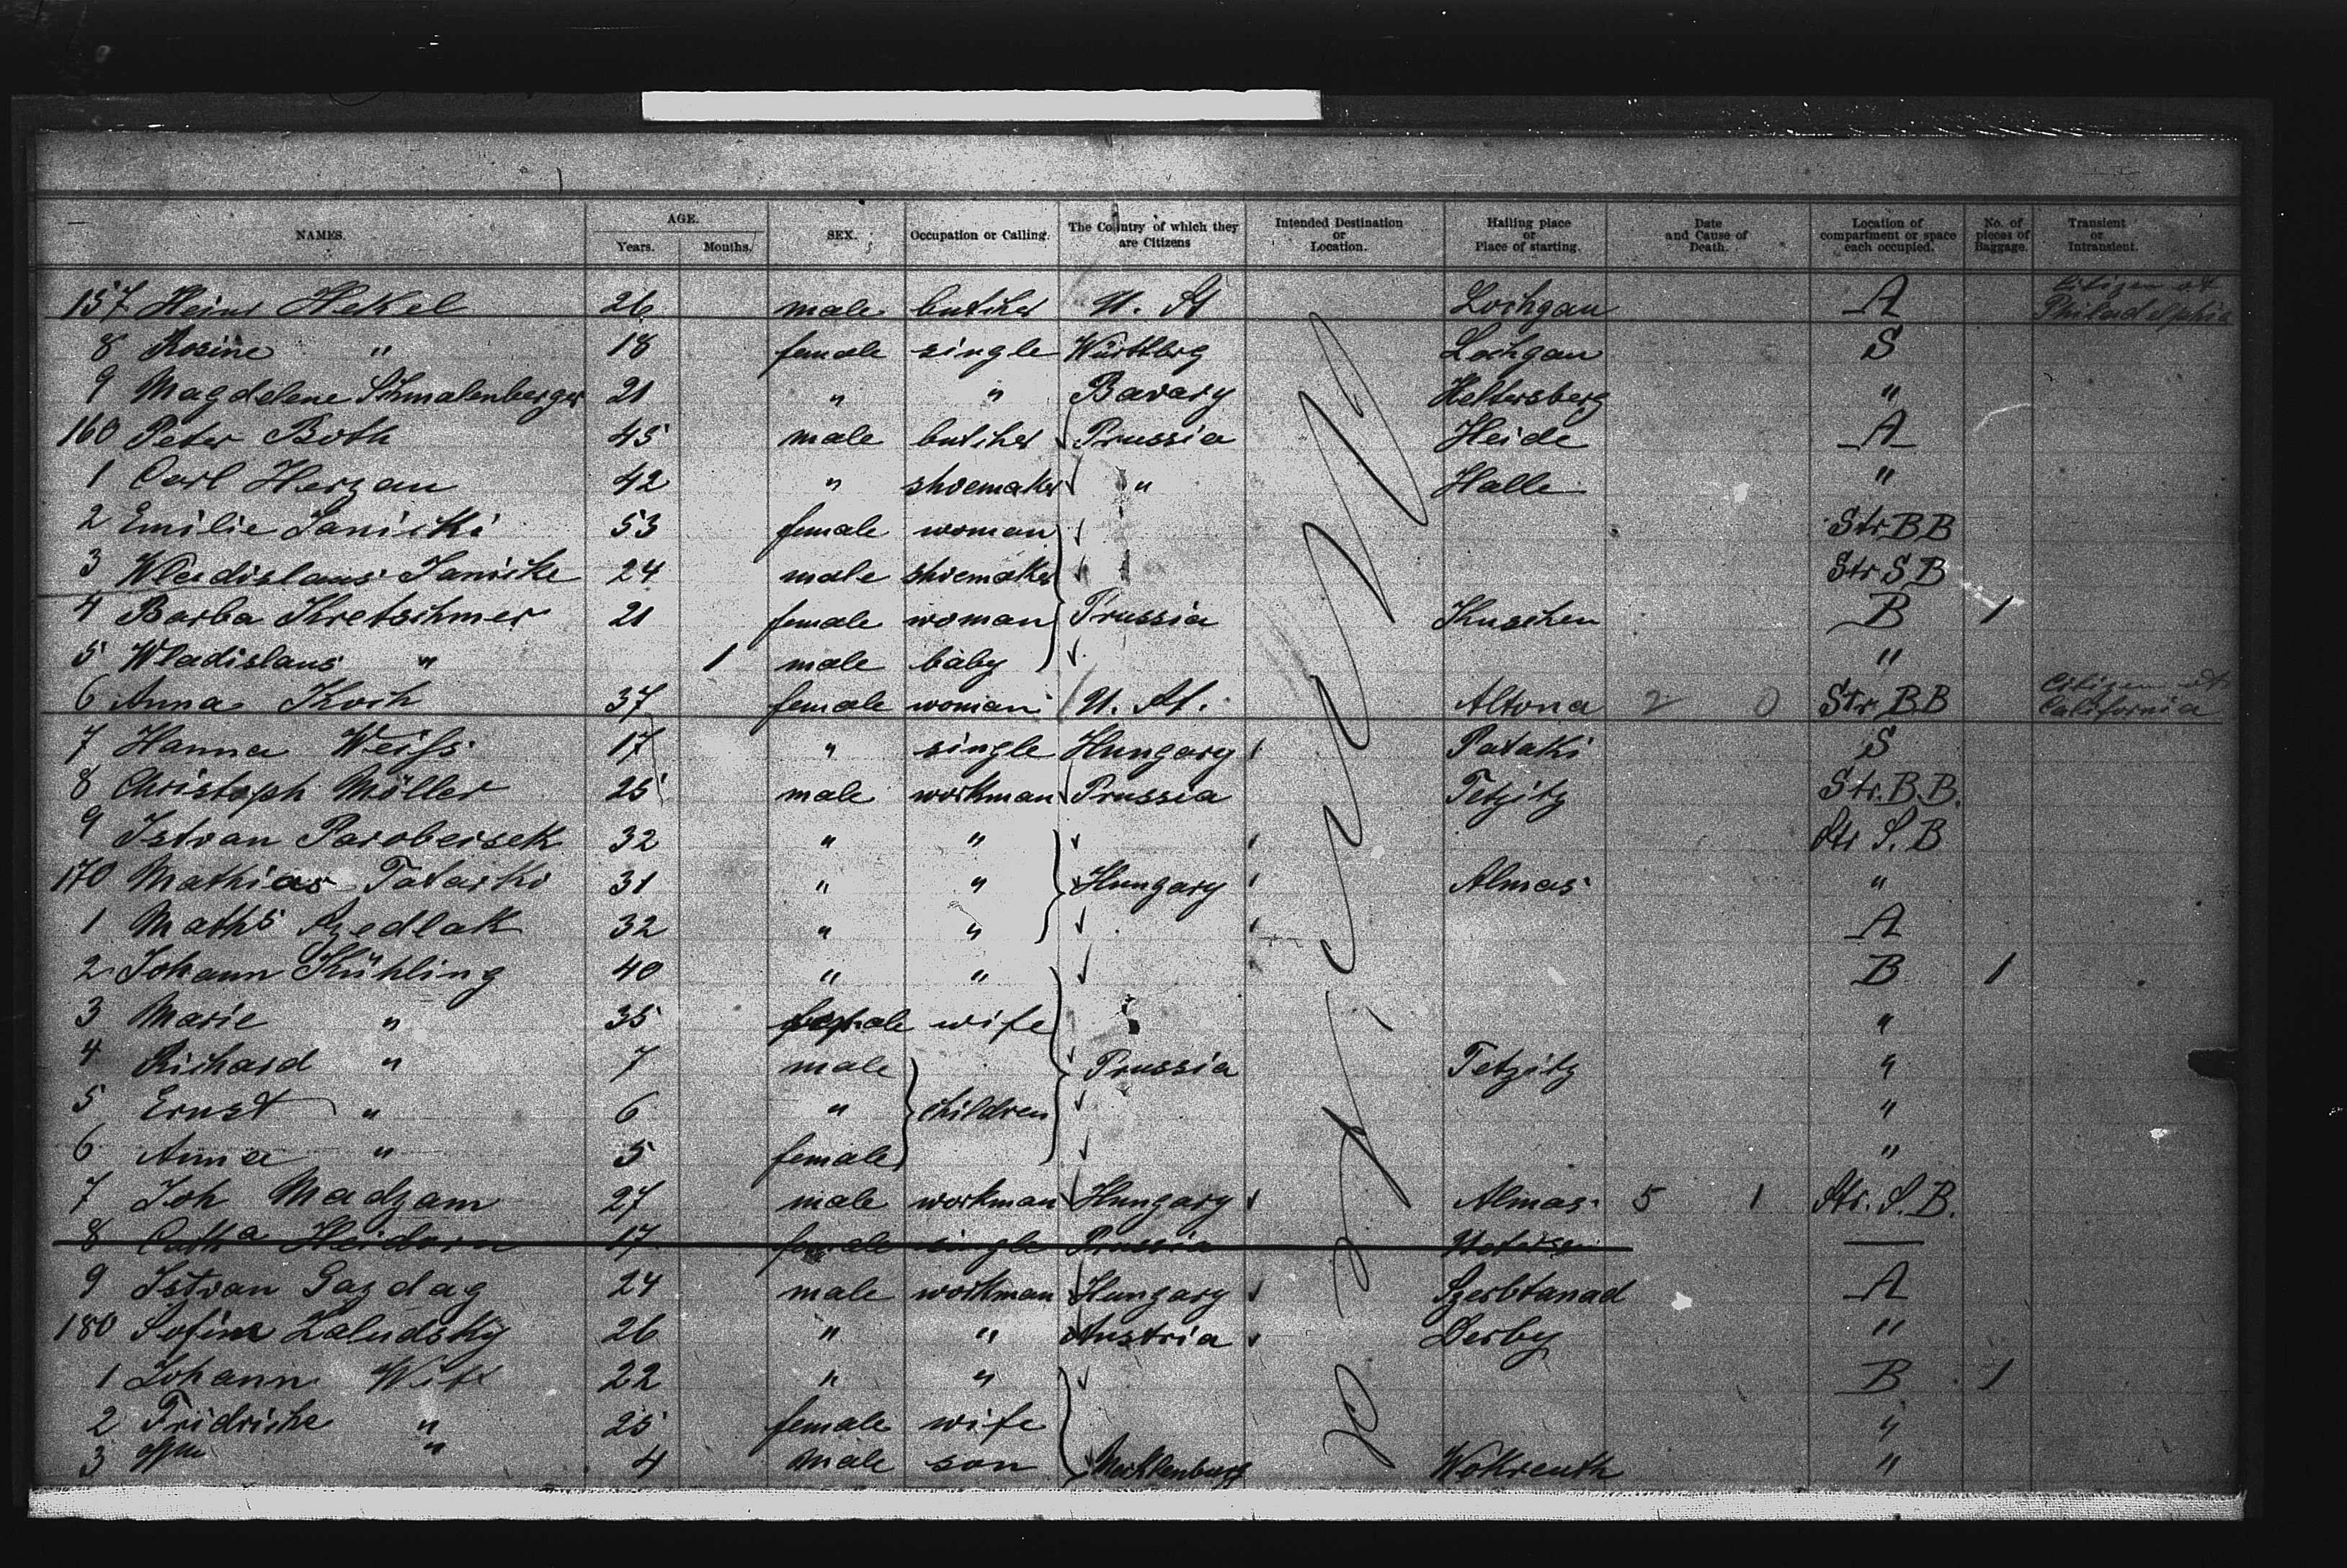 NAMES. AGE. Years. Months. SEX. Occupation or Calling. The Country of which they are Citizens Intended Destination or Location. Hailing place or Place of starting. Date and Cause of Death. Location of compartment or space each occupied. No. of pieces of Baggage. Transient or Intransient.
157 Heinr Hekel 26 male butcher U. St Lochgau A Citizen of Philadelphia
8 Rosine " 18 female single Würtbrg Lochgau S
9 Magdalene Schmalenberger 21 " " Bavary Heltersberg "
160 Peter Both 45 male butcher Prussia Heide A
1 Carl Herzau 42 " shoemaker " Halle "
2 Emilie Janicki 53 female woman Str BB
3 Wladislaus Janicke 24 male shoemaker Str S B
4 Barba Kretschmer 21 female woman Prussia Kuschen B 1
5 Wladislaus " 1 male baby "
6 Anna Koch 37 female woman U. St. Altona 2 0 Str. BB Citizen of California
7 Hanna Weiss 17 " single Hungary Pataki S
8 Christoph Möller 25 male workman Prussia Tetzitz Str. B.B.
9 Istvan Parobeisek 32 " " Str S. B
170 Mathias Tatarko 31 " " Hungary Almas "
1 Maths Szedlak 32 " " A
2 Johann Kühling 40 " " B 1
3 Marie " 35 female wife "
4 Richard " 7 male Prussia Tetzitz "
5 Ernst " 6 " children "
6 Anna " 5 female "
7 Joh Madzam 27 male workman Hungary Almas 5 1 Str. S. B.
8 Catha 17 female single Prussia
9 Istvan Gazdag 24 male workman Hungary A
180 Zaludsky 26 " " Austria Derby "
1 Johann Witt 22 " " B 1
2 Fridricke " 25 female wife "
3 Wm " 4 male son Mecklenburg "